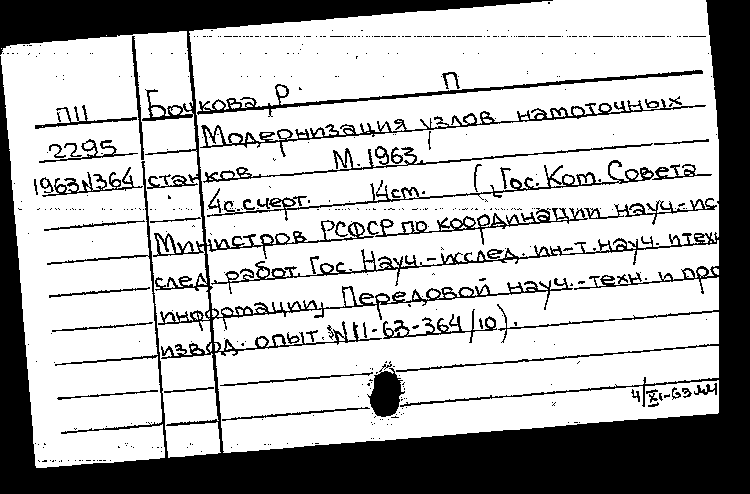 П
ПII Бочкова, Р.
2295 Модернизация узлов намоточных
1963N364 станков. М. 1963.
4с.с черт. 14cm. (Гос. Ком. Совета
Министров РСФСР по координации науч.-ис-
след. работ. Гос. Науч.-исслед. ин-т. науч. и техн
информации, Передовой науч.-техн. и про
извод. опыт. N11-63-364/10).
4/XI-63